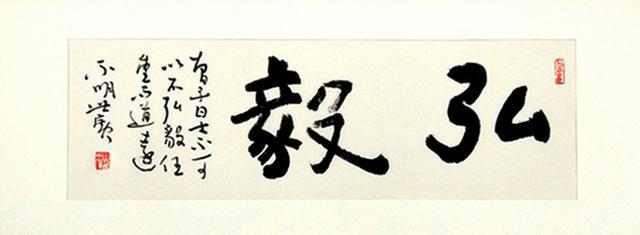 弘毅
曾子曰士不可
以不弘毅任
重而道遠